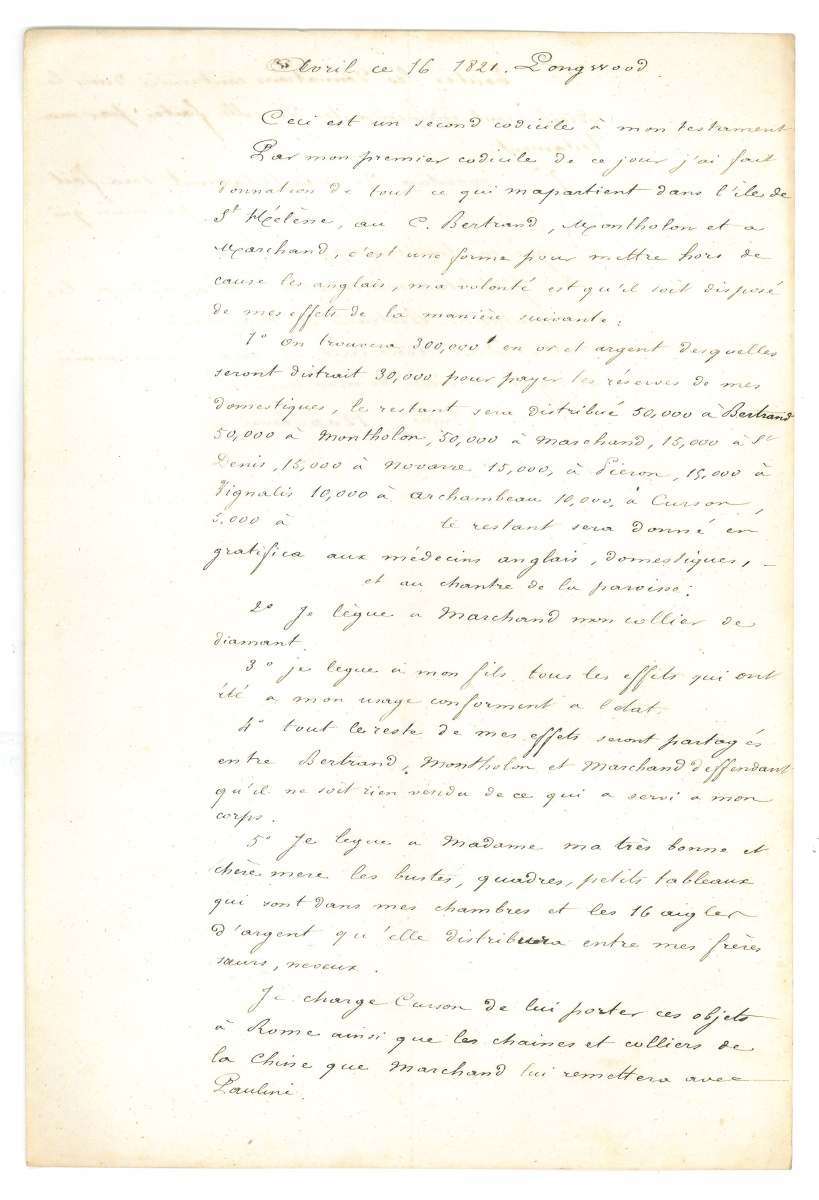 Avril ce 16 1821. Longwood.
Ceci est un second codicile à mon testament
Par mon premier codicile de ce jour j'ai fait
donnation de tout ce qui mapartient dans l'île de
St Hélène, au C. Bertrand, Montholon et a
Marchand, c'est une forme pour mettre hors de
cause les anglais, ma volonté est qu'il soit disposé
de mes effets de la manière suivante:
1° on trouvera 300,000f en or et argent desquelles
seront distrait 30,000 pour payer les réserves de mes
domestiques, le restant sera distribué 50,000 à Bertrand
50,000 à Montholon, 50,000 à Marchand, 15,000 à St
Denis, 15,000 à Novarre 15,000, à Piéron, 15,000 à
Vignalis 10,000 à archambeau 10,000, à Curson,
5,000 à le restant sera donné en
gratifica aux médecins anglais, domestiques,
et au chantre de la paroisse:
2° Je lègue a Marchand mon collier de
diamant.
3° je legue à mon fils tous les effits qui ont
été a mon usage conforment a l'etat.
4° tout le reste de mes effets seront partagés
entre Bertrand, Montholon et Marchand deffendant
qu'il ne soit rien vendu de ce qui a servi a mon
corps.
5° Je legue a Madame ma très bonne et
chère mere les bustes, quadres, petits tableaux
qui sont dans mes chambres et les 16 aigles
d'argent qu'elle distribuera entre mes frères
sœurs, neveux.
Je charge Curson de lui porter ces objets
à Rome ainsi que les chaines et colliers de
la Chine que Marchand lui remettera avec
Paulini.